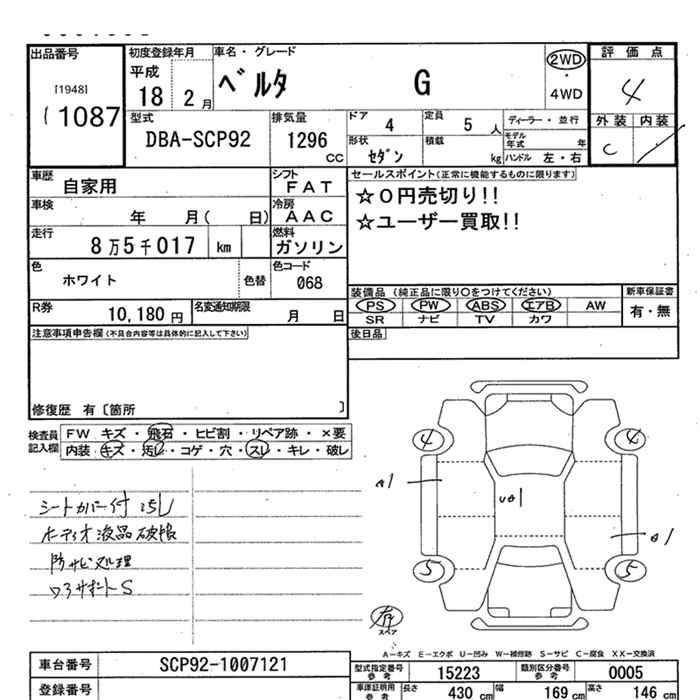 出品番号
[1948]
1087
初度登録年月
平成
18 2月
車名・グレード
ベルタ G
2WD
・
4WD
評価点
4
外装 内装
C
型式
DBA-SCP92
排気量
1296
CC
ドア 4
定員 5 人
形状 セダン
積載 kg
ディーラー・並行
モデル年式 年
ハンドル 左・右
車歴 自家用
シフト
FAT
車検 年 月( 日)
冷房
AAC
走行 8万5千017 km
燃料
ガソリン
色 ホワイト
色替
色コード
068
R券 10,180円
名変通知期限 月 日
セールスポイント(正常に機能するものに限ります)
☆0円売切り!!
☆ユーザー買取!!
装備品 (純正品に限り○をつけてください)
PS PW ABS エアB AW
SR ナビ TV カワ
新車保証書
有・無
後日品
注意事項申告欄(不具合内容等は具体的に記入して下さい)
修復歴 有[箇所 ]
検査員記入欄
FW キズ・飛石・ヒビ割・リペア跡・×要
内装・キズ・汚レ・コゲ・穴・スレ・キレ・破レ
シートカバー付 汚レ
オーディオ液晶破損
防サビ処理
4 4
A1
UA1
A1
5 5
有
スペア
A-キズ E-エクボ U-凹み W-補修跡 S-サビ C-腐食 XX-交換済
車台番号 SCP92-1007121
登録番号
型式指定番号
参考
15223
類別区分番号
参考
0005
車庫証明用
参考
長さ 430 cm
幅 169 cm
高さ 146 cm